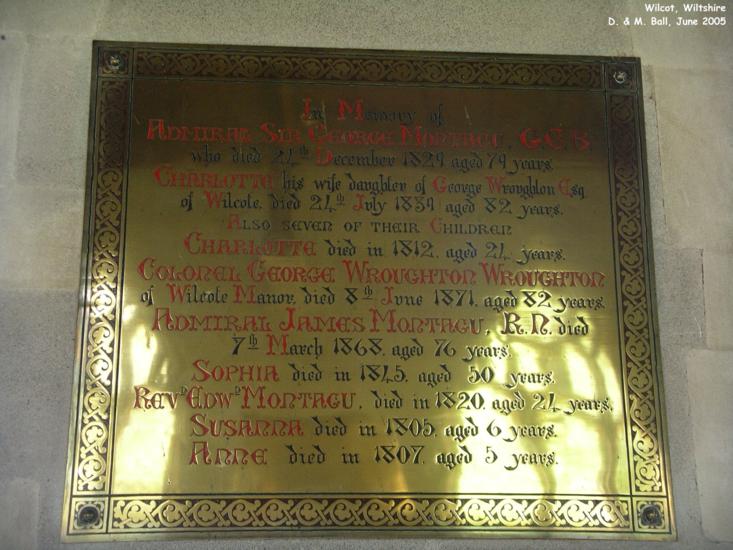 Wilcot, Wiltshire
D. & M. Ball, June 2005
In Memory of
Admiral Sir George Montagu, G.C.B.
who died 24th December 1829 aged 79 years.
Charlotte his wife daughter of George Wroughton Esq.
of Wilcote. died 24th July 1839 aged 82 years.
Also seven of their Children
Charlotte died in 1812. aged 24 years.
Colonel George Wroughton Wroughton
of Wilcote Manor. died 8th June 1871. aged 82 years.
Admiral James Montagu, R.N. died
7th March 1868. aged 76 years.
Sophia died in 1845. aged 50 years.
Revd Edwd Montagu. died in 1820. aged 24 years.
Susanna died in 1805. aged 6 years.
Anne died in 1807. aged 5 years.